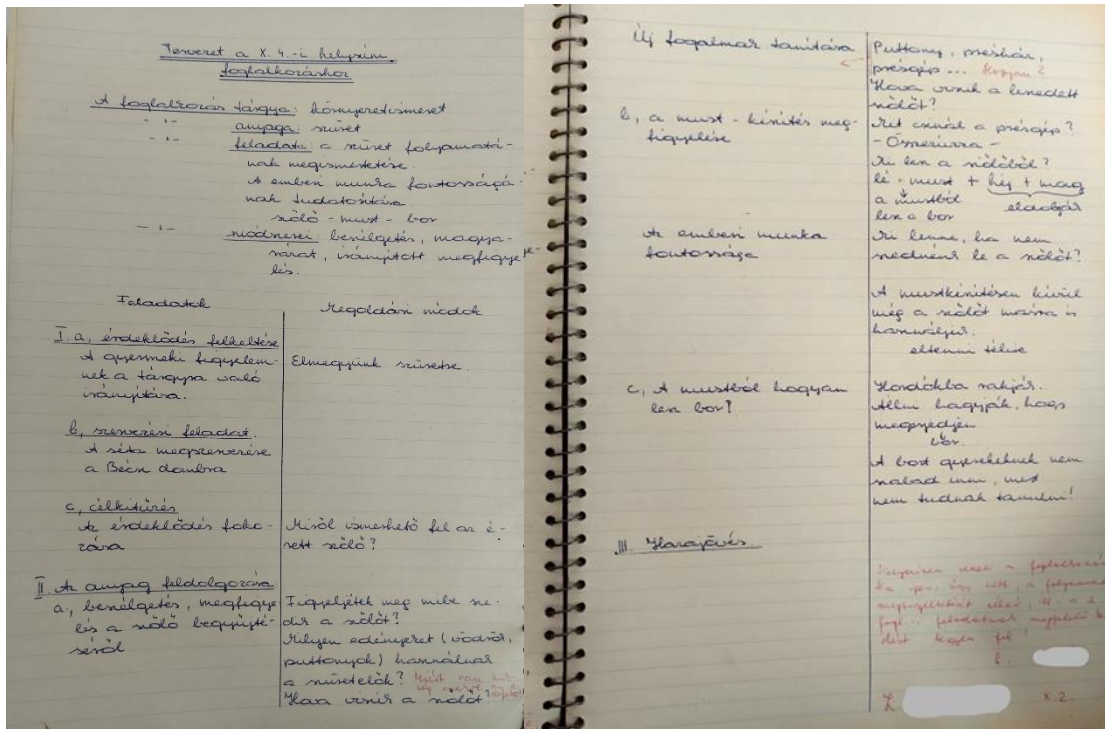 Tervezet a X. 4.-i helyszíni
foglalkozáshoz
A foglalkozás tárgya: környezetismeret
-"- anyaga: szüret
-"- feladata: a szüret folyamatá-
nak megismertetése.
Az emberi munka fontosságá-
nak tudatosítása
szőlő - must - bor
-"- módszerei: beszélgetés, magya-
rázat, irányított megfigye-
lés.
Feladatok
Megoldási módok
I. a, érdeklődés felkeltése
A gyermeki figyelem-
nek a tárgyra való
irányítása.
Elmegyünk szüretre.
b, szervezési feladat.
A séta megszervezése
a Bécsi dombra
c, célkitűzés
Az érdeklődés foko-
zása
Miről ismerhető fel az é-
rett szőlő?
II. Az anyag feldolgozása
a, beszélgetés, megfigye-
lés a szőlő begyűjté-
séről
Figyeljétek meg mibe sze-
dik a szőlőt?
Milyen edényeket (vödör,
puttonyok) használnak
a szüretelők? Miért van
Hova viszik a szőlőt?
Új fogalmak tanítása
Puttony, présház,
présgép ... Hogyan?
Hova viszik a leszedett
szőlőt?
b, a must - készítés meg-
figyelése
Mit csinál a présgép?
- Összezúzza -
Mi lesz a szőlőből?
lé - must + héj + mag
a mustból eldobják
lesz a bor
Az emberi munka
fontossága
Mi lenne, ha nem
szednénk le a szőlőt?
A mustkészítésen kívül
még a szőlőt másra is
használják:
eltenni télire
c, A mustból hogyan
lesz bor?
Hordókba rakják.
Állni hagyják, hogy
megerjedjen
bor.
A bort gyerekeknek nem
szabad inni, mert
nem tudnak tanulni!
III. Hazajövés.
Helyszínen a foglalkozás
a folyamat
a
fogl.
fel!
X. 2.